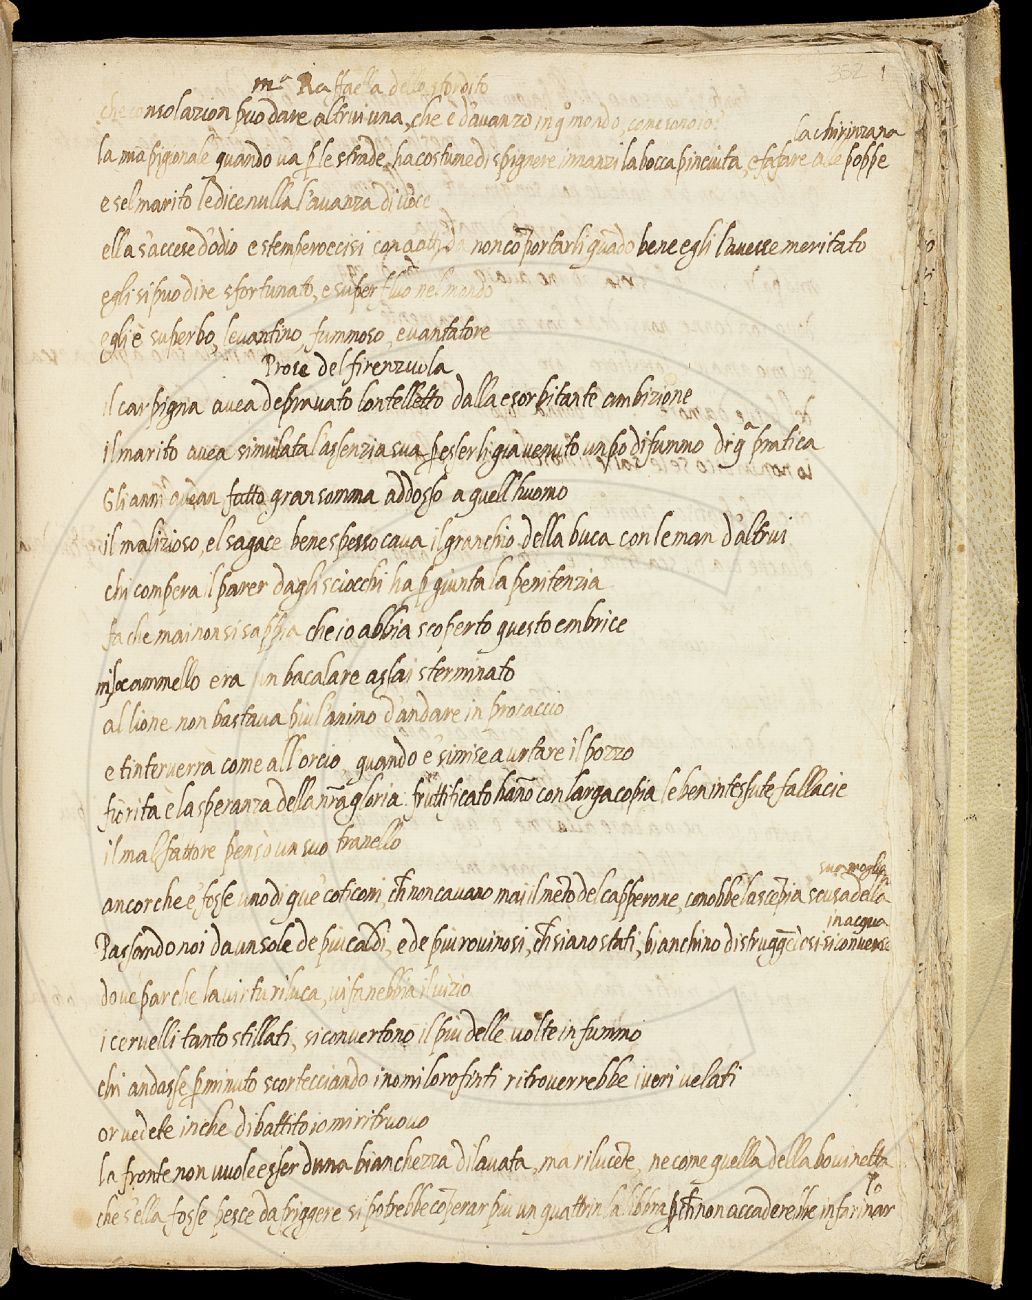 352 1
m.ª Raffaella dello stordito
che consolazion puo dare altrui una, che è d'avanzo in q.º mondo, come sono io?
la mapigonale quando va p le strade, ha costume di spignere innanzi la bocca pinciuta, e fa fare a le poppe la chirinzana
e se'l marito le dice nulla l'avanza di voce
ella s'accese d'odio e stemperoccisi non comportarli quãdo bene egli l'avesse meritato
egli si puo dire sfortunato, e superfluo nel mondo
egli è superbo, levantino, fummoso, e vantatore
Prose del firenzuola
il carpigna avea depravato lontelletto dalla esorbitante ambizione
il marito avea simulata l'assenzia sua p esserli gia venuto un po di fummo di q.ª pratica
Gli anni avean fatto gran somma addosso a quell'huomo
il malizioso, e'l sagace bene spesso cava il granchio della buca con le man d'altrui
chi compera il parer dagli sciocchi ha p giunta la penitenzia
fa che mai non si sappia che io abbia scoperto questo embrice
cammello era un bacalare assai sterminato
al lione non bastava piu l'animo d'andare in procaccio
e t'interverrà come all'orcio quando e' si mise a urtare il pozzo
fiorita è la speranza della nr̃a gloria fruttificato hãno con larga copia le ben intessute fallacie
il malfattore pensò un suo tranello
ancorche e' fosse uno di que' coticoni, ch̃ non cavano mai il mento del capperone, conobbe la scempia scusa della sua moglie
Passando noi da un sole de piu caldi, e de piu rovinosi, ch̃ siano stati, bianchino distruggẽdosi si converse in acqua
dove par che la virtu riluca, vi fa nebbia il vizio
i cervelli tanto stillati, si convertono il piu delle volte in fummo
chi andasse p minuto scortecciando i nomi loro finti ritroverrebbe i veri velati
or vedete in che dibattito io mi ritruovo
la fronte non vuole esser d'una bianchezza dilavata, ma rilucẽte, ne come quella della bovinetta
che s'ella fosse pesce da friggere si potrebbe cõperar piu un quattrin la libbra p ch̃ non accaderebbe infarinar.lo